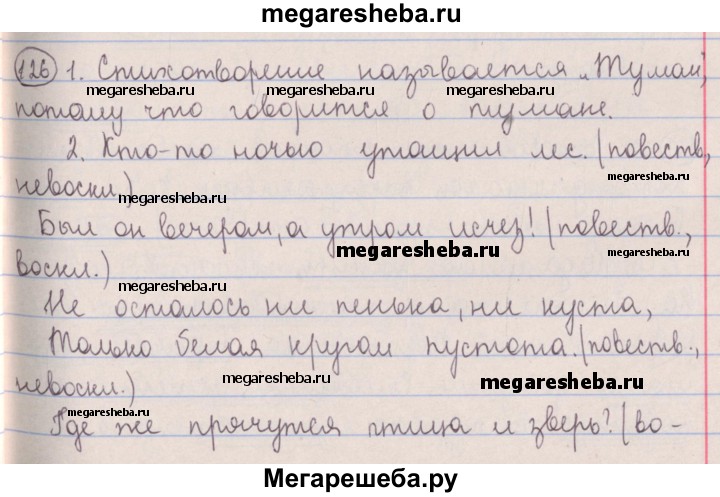 megaresheba.ru
126 1. Стихотворение называется „Туман",
megaresheba.ru megaresheba.ru megaresheba.ru
потому что говорится о тумане.
megaresheba.ru
2. Кто-то ночью утащил лес. (повеств,
невоскл.)
megaresheba.ru megaresheba.ru
Был он вечером, а утром исчез! (повеств.,
megaresheba.ru
воскл.)
megaresheba.ru
Не осталось ни пенька, ни куста,
Только белая кругом пустота. (повеств.,
невоскл.)
megaresheba.ru megaresheba.ru
megaresheba.ru
Где же прячутся птица и зверь? (во-
Мегарешеба.ру